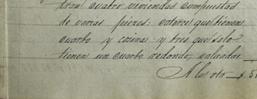 tran cuatro viviendas compuestas
de varias piezas: catorce que tienen
cuarto y cocina y tres que solo
tienen un cuarto redondo, valuadas
A la vta